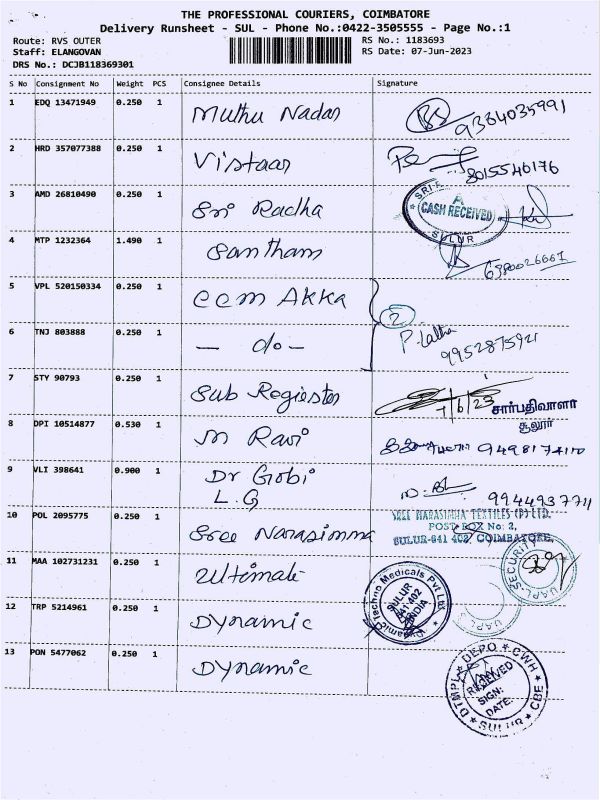 THE PROFESSIONAL COURIERS, COIMBATORE
Delivery Runsheet - SUL - Phone No.:0422-3505555 - Page No.:1
Route: RVS OUTER
Staff: ELANGOVAN
DRS No.: DCJB118369301
RS No.: 1183693
RS Date: 07-Jun-2023
S No Consignment No Weight PCS Consignee Details Signature
1 EDQ 13471949 0.250 1 Muthu Nadar 9384035991
2 HRD 357077388 0.250 1 Vistaar 8015540176
3 AMD 26810490 0.250 1 Sri Radha
CASH RECEIVED
SULUR
4 MTP 1232364 1.490 1 Santham 6380026667
5 VPL 520150334 0.250 1 eem AKKA
2
6 TNJ 803888 0.250 1 - do - P. Latha
9952875921
7 STY 90793 0.250 1 Sub Register 7/6/23 சார்பதிவாளர்
சூலூர்
8 DPI 10514877 0.530 1 M Ravi 9498174110
9 VLI 398641 0.900 1 Dr Gobi
L.G
9944937711
10 POL 2095775 0.250 1 Sree Narasimma
SREE NARASIMHA TEXTILES (P) LTD.
POST BOX No: 2,
SULUR-641 402, COIMBATORE.
11 MAA 102731231 0.250 1 Ultimate
UAPL-SECURITY
UAPL
12 TRP 5214961 0.250 1 Dynamic
Dynamic Techno Medicals Pvt Ltd
SULUR
641 402
INDIA
13 PON 5477062 0.250 1 Dynamic
DTMPL DEPO CWH CBE SULUR
RECEIVED
SIGN:
DATE: